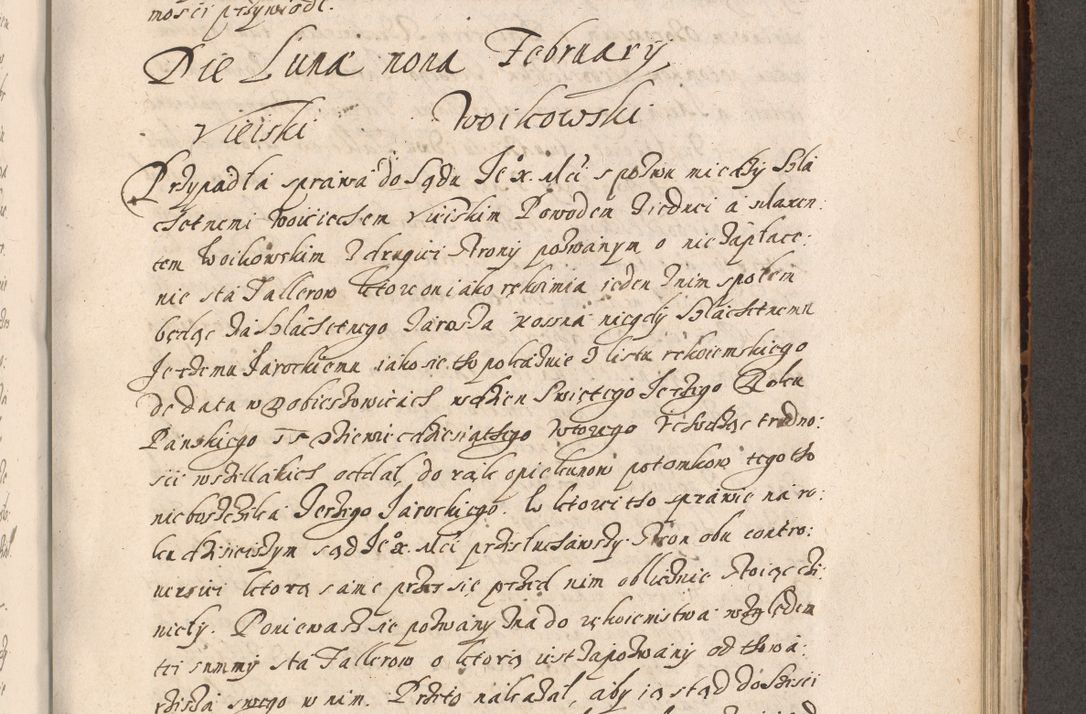 mości przywiódł.
Die Lunæ nona February
Vieiski Woikowski
Przypadła sprawa do Sądu Je° X. Mci s pozwu między Szla
chetnemi Woiciechem Vieiskim Powodem z iednei a Maxen:
tem Woikowskim z drugiei strony pozwanym o niezapłace:
nie sta Tallerow ktore on iako rękoimia ieden z nim społem
będąc za Szlachetnego Jarosza Kossna niegdy Szlachetnemu
Jerzemu Jarockiemu iako się tho pokazuie z listu rękoiemskiego
de data w Pobieszowicach w dzien Swiętego Jerzego Roku
Panskiego dziewiędziesiąthego wtorego uchodząc trudno:
sci wszellakich oddał, do rąk opiekunow potomkow tego tho
nieboszczika Jerzego Jarockiego. W ktorei tho sprawie na ro:
ku dzisieiszym sąd Je° X. Mci przesłuchawszy stron obu contro:
uersiei ktorą same przes się przed nim oblicznie stoiąc czi:
nieły. Poniewasz się pozwany zna do rękoiemstwa względem
tei summy sta Tallerow o ktorą iest zapozwany od thowa:
rzisza swego w nim. Przeto nakazał, aby ią stąd do sześci